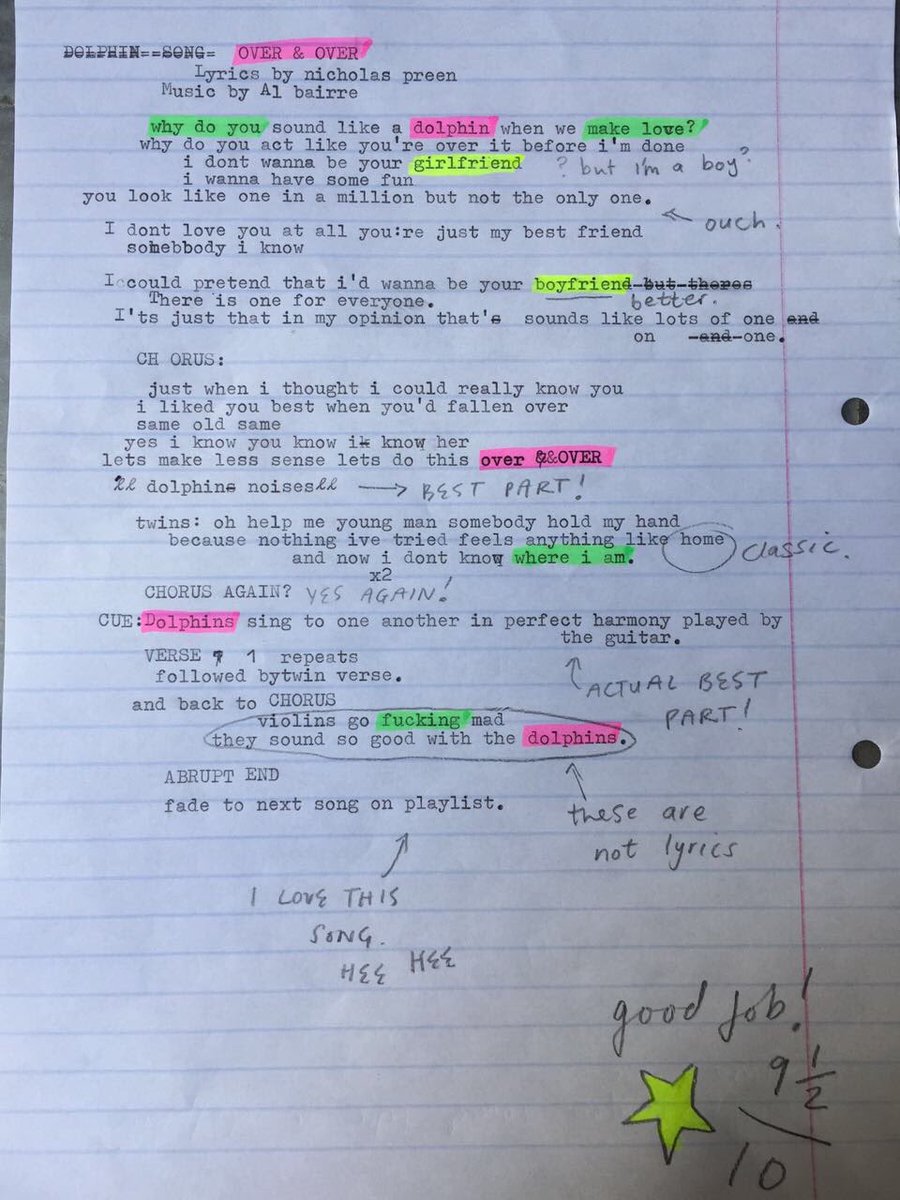 DOLPHIN==SONG= OVER & OVER
Lyrics by nicholas preen
Music by Al bairre
why do you sound like a dolphin when we make love?
why do you act like you're over it before i'm done
i dont wanna be your girlfriend ? but i'm a boy?
i wanna have some fun
you look like one in a million but not the only one.
ouch.
I dont love you at all you:re just my best friend
somebbody i know
I could pretend that i'd wanna be your boyfriend but theres
There is one for everyone. better.
I'ts just that in my opinion that's sounds like lots of one and
on and one.
CH ORUS:
just when i thought i could really know you
i liked you best when you'd fallen over
same old same
yes i know you know ik know her
lets make less sense lets do this over &&OVER
dolphins noises BEST PART!
twins: oh help me young man somebody hold my hand
because nothing ive tried feels anything like home classic.
and now i dont know where i am.
x2
CHORUS AGAIN? YES AGAIN!
CUE:Dolphins sing to one another in perfect harmony played by
the guitar.
VERSE 1 repeats
followed bytwin verse.
ACTUAL BEST
PART!
and back to CHORUS
violins go fucking mad
they sound so good with the dolphins.
ABRUPT END
fade to next song on playlist.
these are
not lyrics
I LOVE THIS
SONG.
HEE HEE
good job!
9 1/2
10